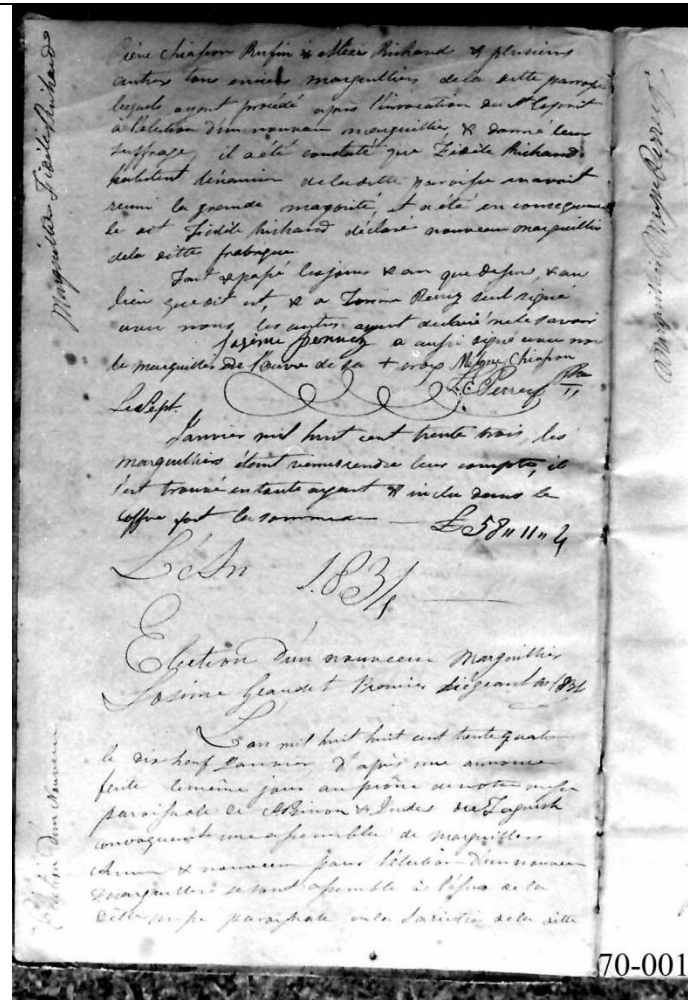 Chiasson Rufin & Alexe Richard & plusieurs
autres tous anciens marguilliers de la ditte paroisse
lequels ayant procédé apres l'invocation du St Esprit
à l'election d'un nouveau marguillier, & donné leur
suffrage, il a été constaté que Fidèle Richard
habitent de la ditte paroisse en avoit
reuni la grande magorité, et a été en consequence
le dit Fidèle Richard déclaré nouveau marguillier
de la ditte frabique
Fait & passé les jours & an que dessus, & au
lieu que dit est, & a Perrez seul signé
avec nous, les autres ayant declaré ne le savoir
a aussi signé avec nous
le marguillier de l'œuvre de sa + croix Chiasson
Le Sept.
Janvier mil huit cent trente trois, les
marguilliers étant venus rendre leur compte, il
s'est trouvé en tout argent & inclu dans le
coffre fort la somme de — £ 58 " 11 " 4
L'An 1834
Election d'un nouveau Marguillier
1834
L'an mil huit huit cent trente quatre
le dix neuf Janvier d'après une annonce
faite le même jour au prône de notre messe
paroissiale de
convoquent une assemblée de marguilliers
& nouveau pour l'élection d'un nouveau
marguillier se sont assemblé à l'issue de la
ditte messe paroissiale en la Sacristie de la ditte
Marguillier Fidèle Richard
Election d'un Nouveau
Marguillier
70-001